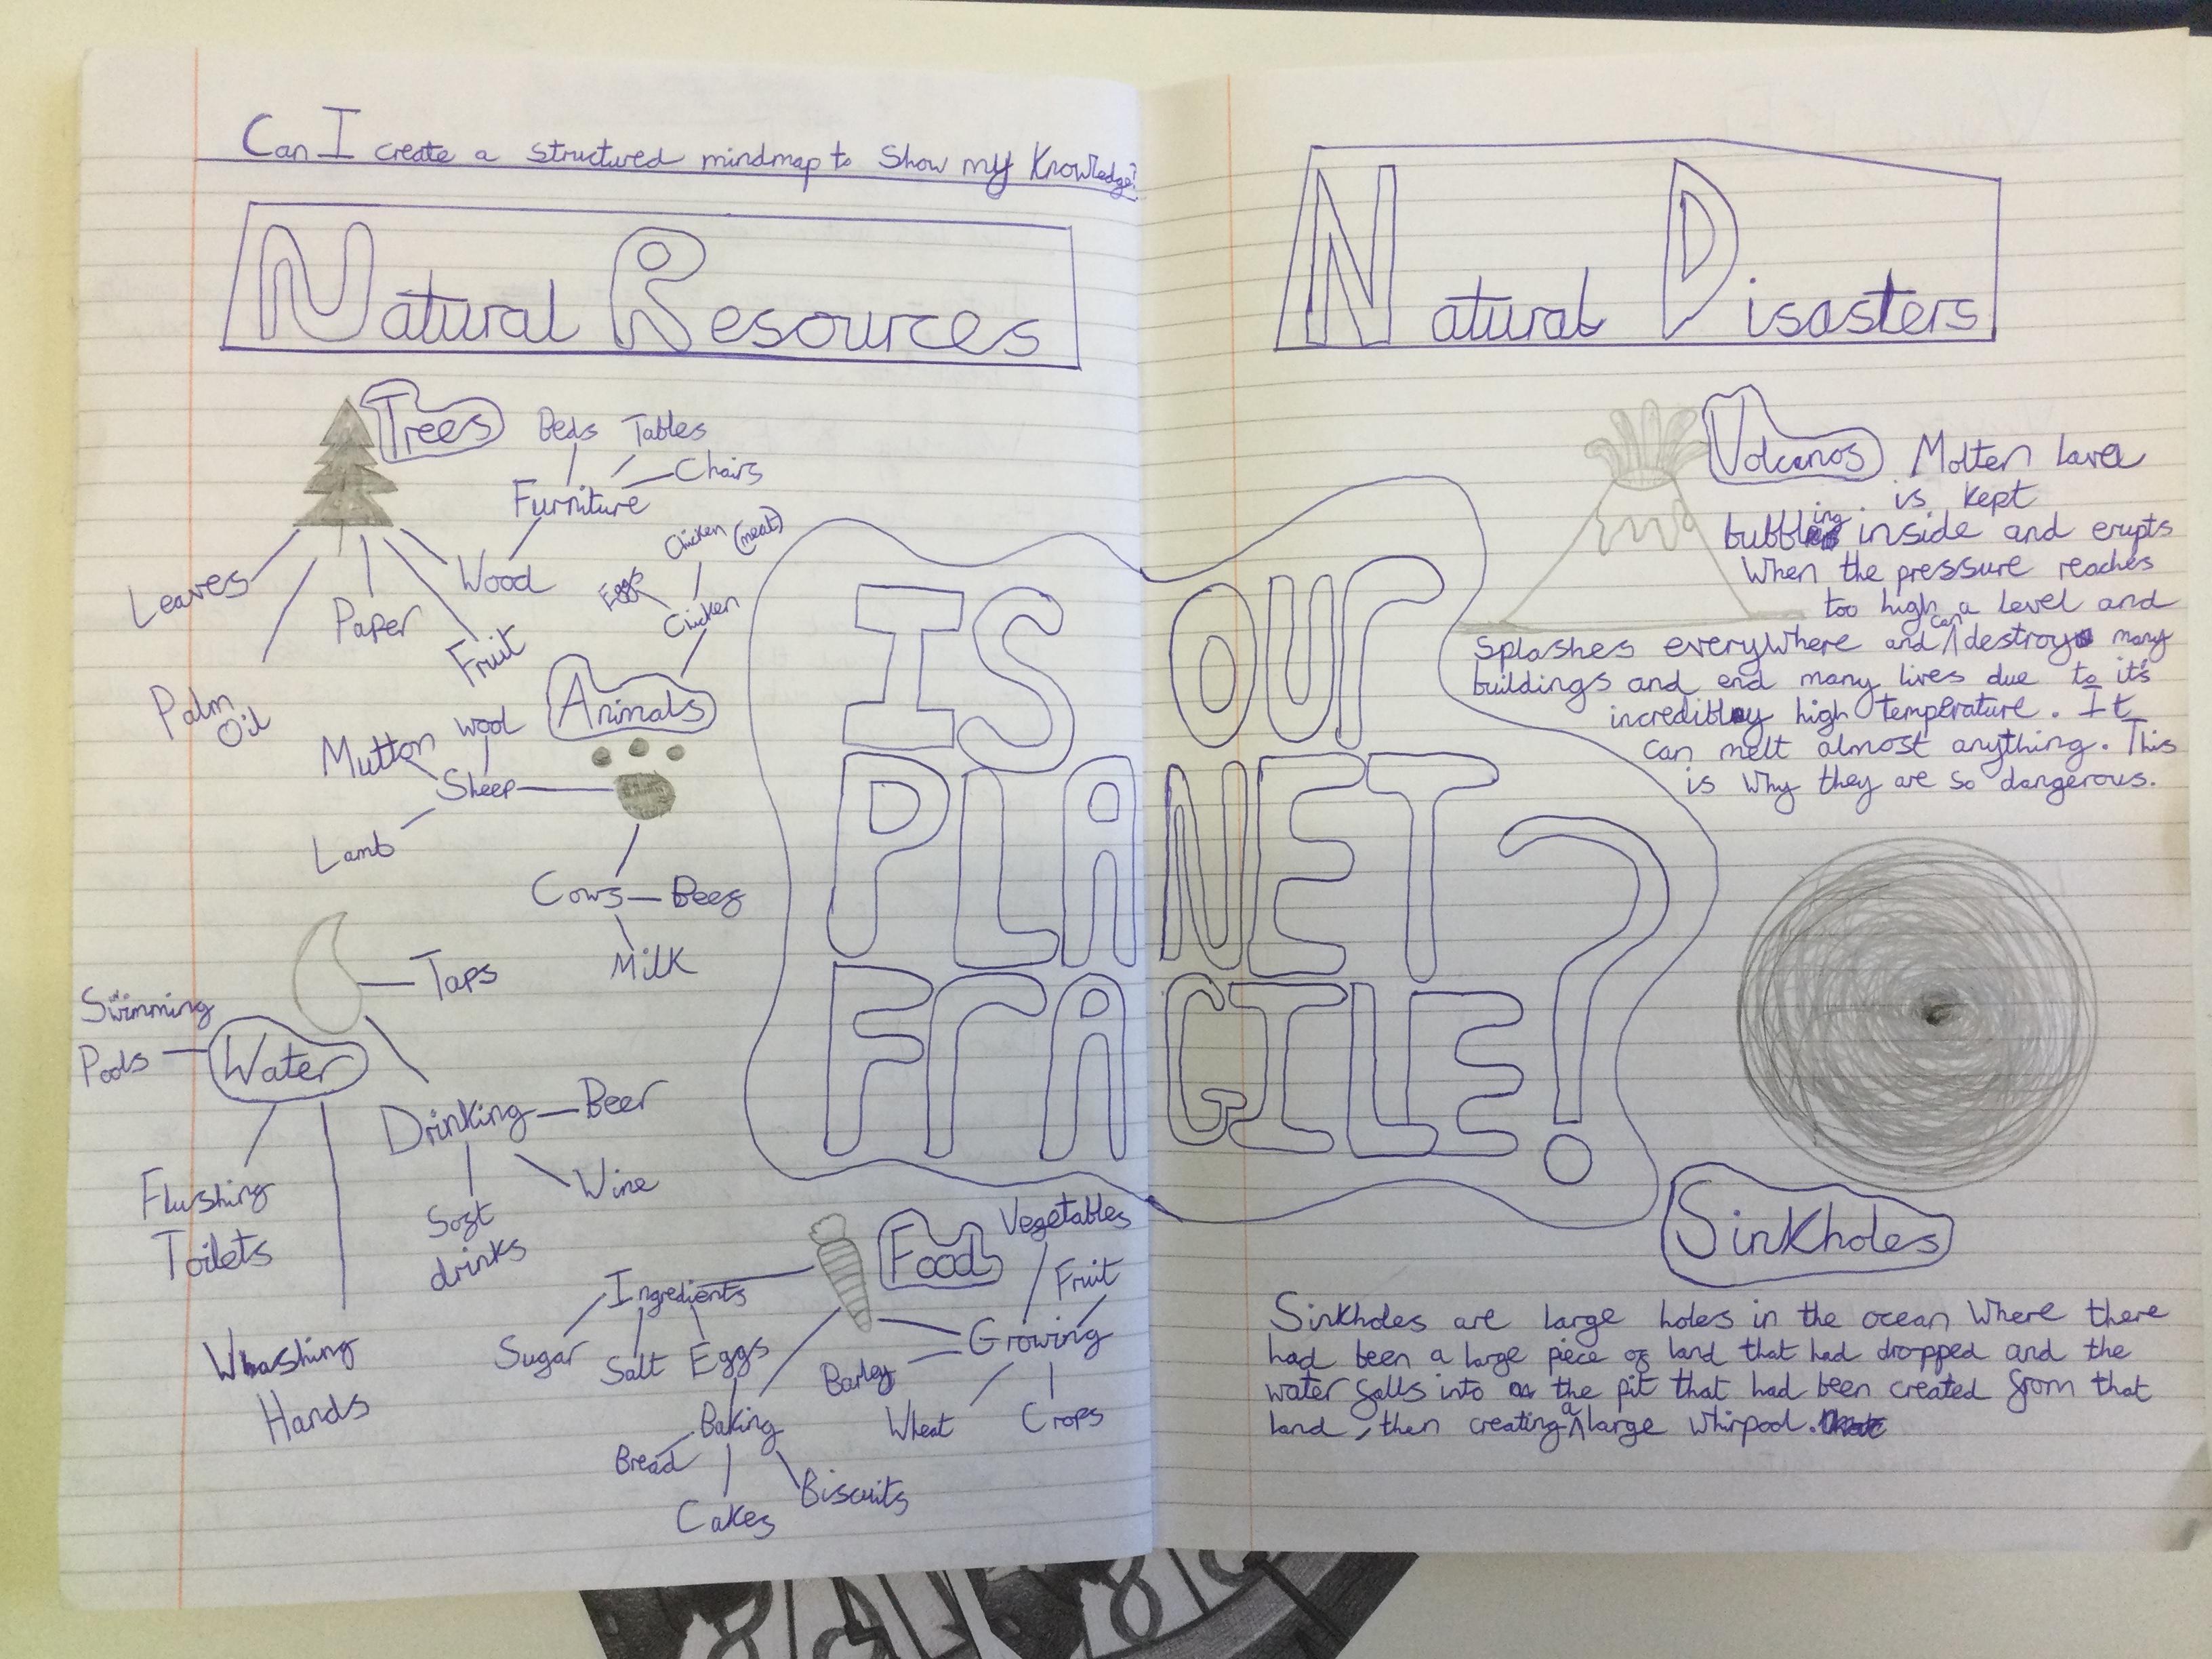 Can I create a structured mindmap to show my Knowledge?
Natural Resources
Trees
Beds
Tables
Chairs
Furniture
Wood
Leaves
Palm
Oil
Paper
Fruit
Chicken (meat)
Eggs
Chicken
Animals
Mutton
Wool
Sheep
Lamb
Cows
Beef
Milk
Taps
Swimming
Pools
Water
Drinking
Beer
Wine
Soft
drinks
Flushing
Toilets
Washing
Hands
Food
Vegetables
Fruit
Growing
Barley
Wheat
Crops
Ingredients
Sugar
Salt
Eggs
Baking
Bread
Cakes
Biscuits
IS OUR
PLANET
FRAGILE?
Natural Disasters
Volcanos
Molten lava
is kept
bubbling inside and erupts
When the pressure reaches
too high a level and
splashes everywhere and can destroy many
buildings and end many lives due to it's
incredibly high temperature. It
can melt almost anything. This
is why they are so dangerous.
Sinkholes
Sinkholes are large holes in the ocean Where there
had been a large piece of land that had dropped and the
water falls into the pit that had been created from that
land, then creating a large whirpool.